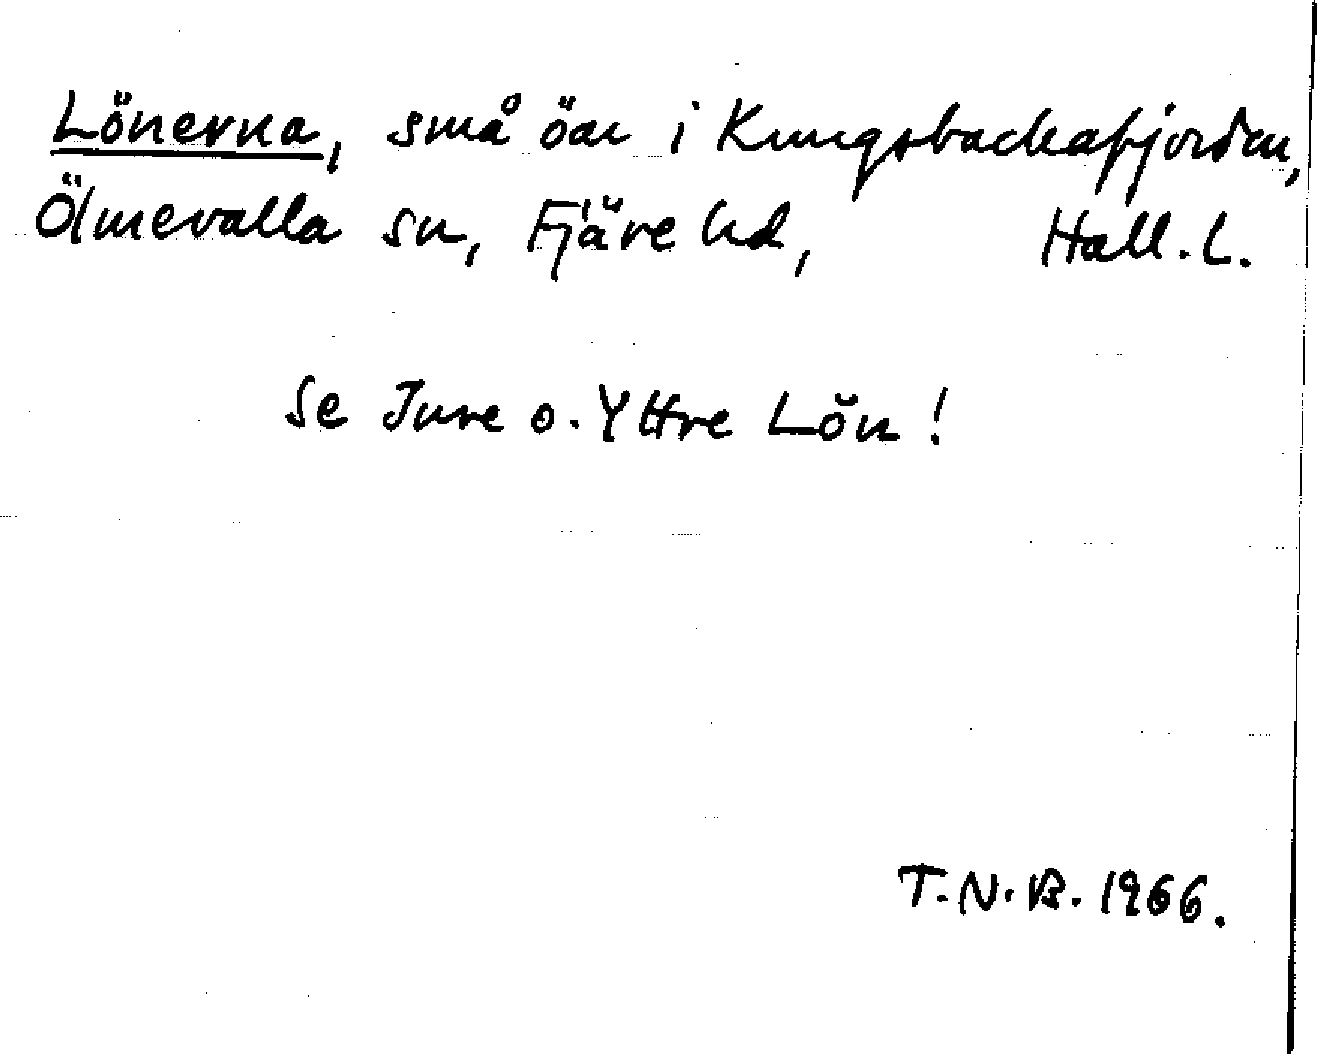 Lönerna, små öar i Kungsbackafjorden,
Ölmevalla sn, Fjäre hd, Hall. L.
Se Inre o. Yttre Lön!
T.N.B. 1966.